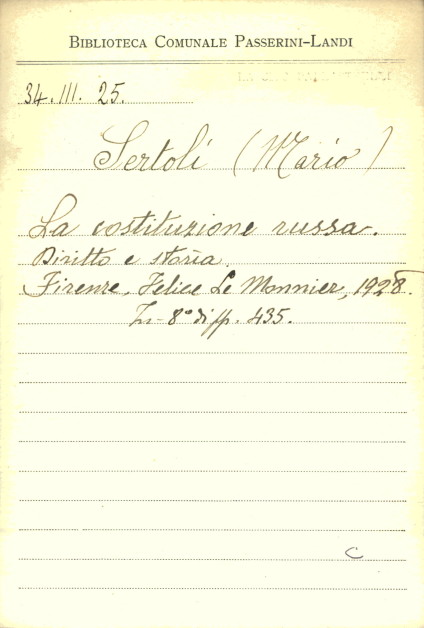 BIBLIOTECA COMUNALE PASSERINI-LANDI
34. III. 25.
Sertoli (Mario)
La costituzione russa.
Diritto e storia.
Firenze, Felice Le Monnier, 1928.
In-8° di pp. 435.
C